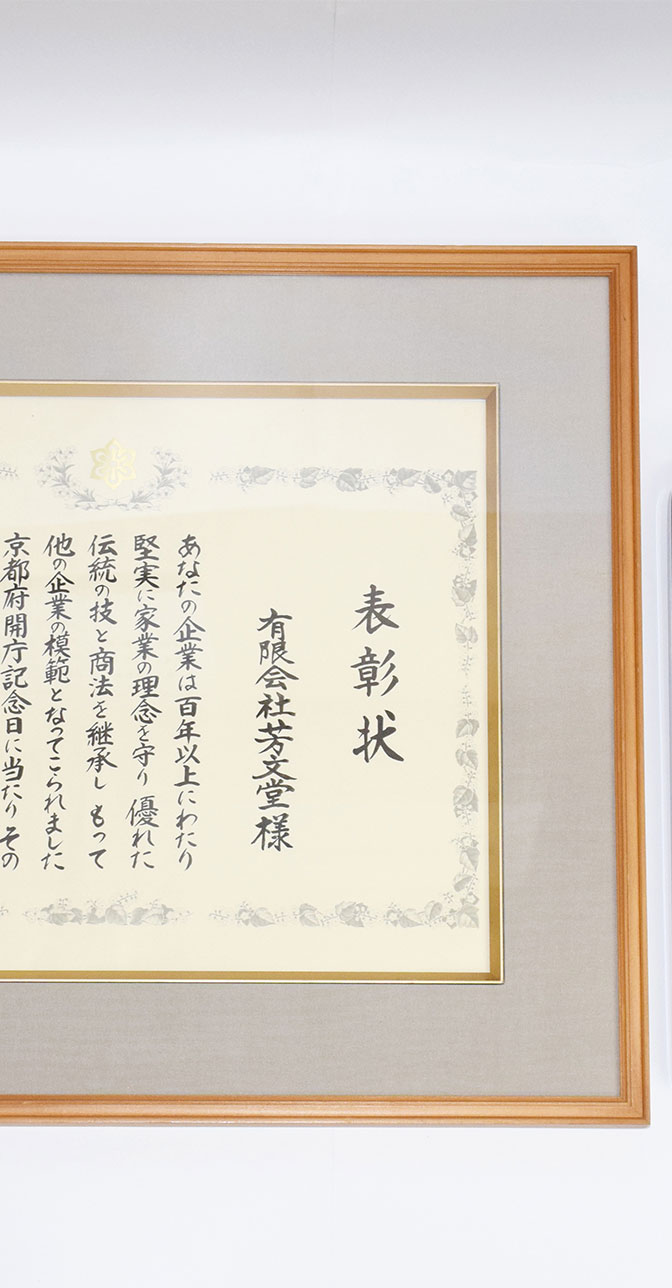 表彰状
有限会社芳文堂様
あなたの企業は百年以上にわたり
堅実に家業の理念を守り 優れた
伝統の技と商法を継承し もって
他の企業の模範となってこられました
京都府開庁記念日に当たり その